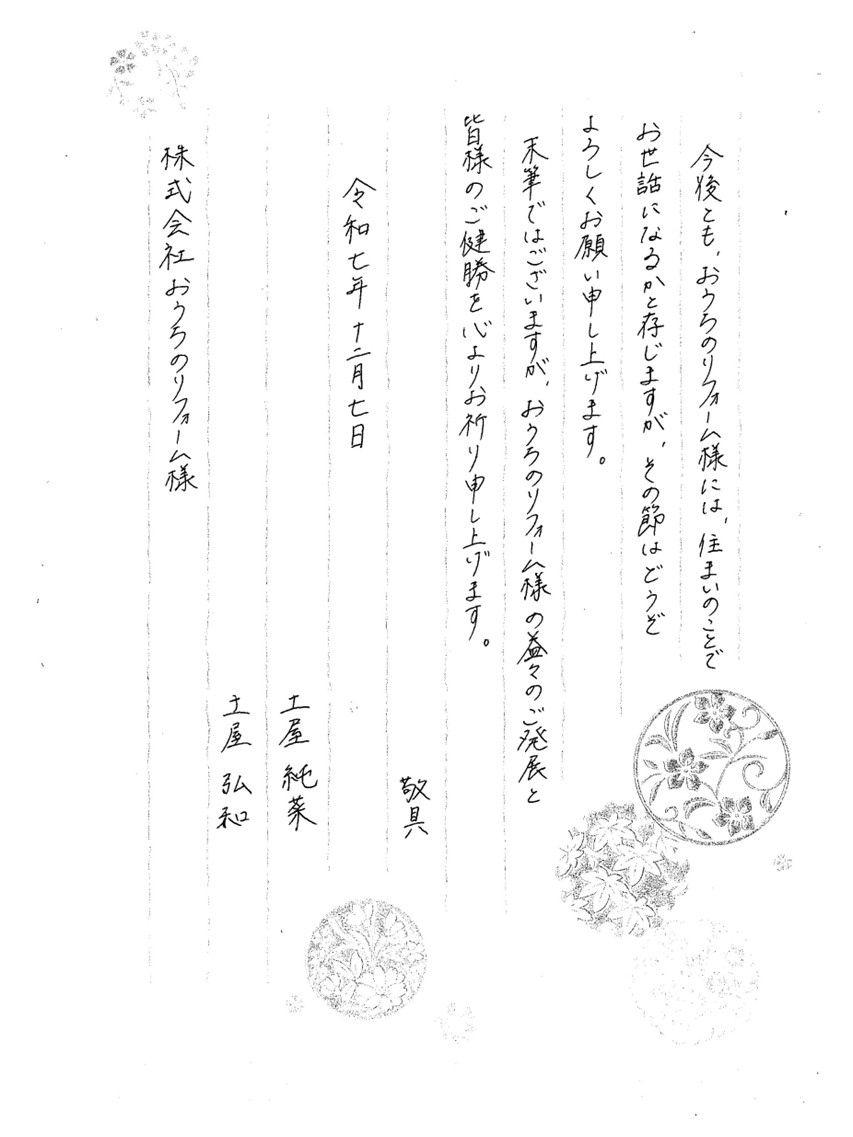 今後とも、おうちのリフォーム様には、住まいのことで
お世話になるかと存じますが、その節はどうぞ
よろしくお願い申し上げます。
末筆ではございますが、おうちのリフォーム様の益々のご発展と
皆様のご健勝を心よりお祈り申し上げます。
敬具
令和七年十二月七日
土屋 純菜
土屋 弘和
株式会社おうちのリフォーム様